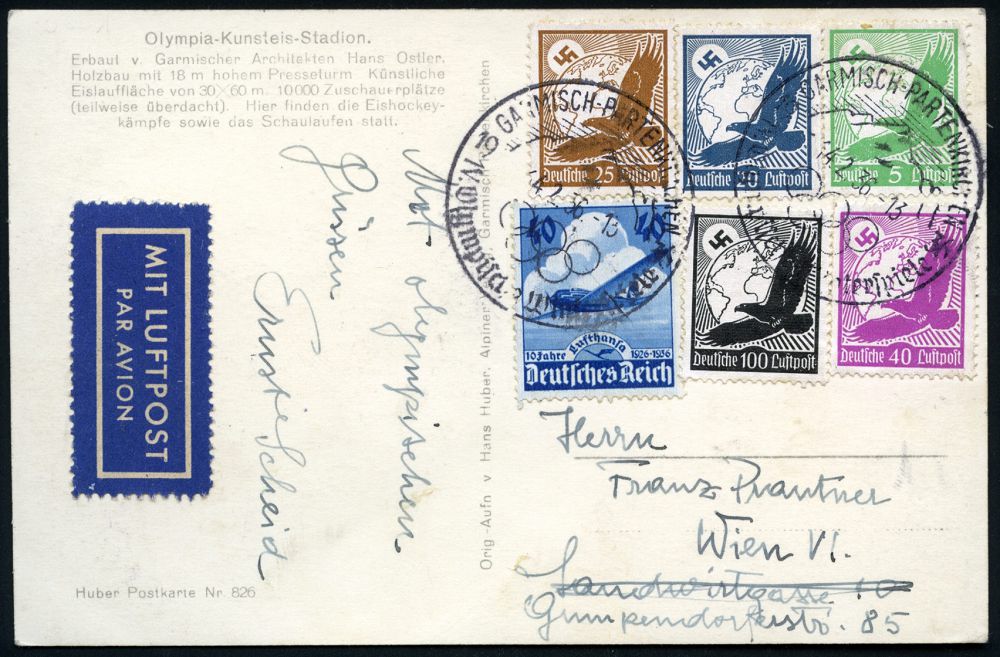 Olympia-Kunsteis-Stadion.
Erbaut v. Garmischer Architekten Hans Ostler.
Holzbau mit 18 m hohem Presseturm Künstliche
Eislauffläche von 30×60 m. 10000 Zuschauerplätze
(teilweise überdacht). Hier finden die Eishockey-
kämpfe sowie das Schaulaufen statt.
MIT LUFTPOST
PAR AVION
Mit olympischen
Grüssen
Ernst Scheid
Huber Postkarte Nr. 826
Orig-Aufn v Hans Huber, Alpiner Garmisch
kirchen
Deutsche 25 Luftpost
Deutsche 20 Luftpost
Deutsche 5 Luftpost
40 40
10 Jahre Lufthansa 1926-1936
Deutsches Reich
Deutsche 100 Luftpost
Deutsche 40 Luftpost
GARMISCH-PARTENKIRCHEN
2.36-13
IV. Olympische Winterspiele
GARMISCH-PARTENKIRCHEN
2.36-13
Winterspiele
Herrn
Franz Prantner
Wien VI.
Landwirtgasse 10
Gumpendorferstr. 85